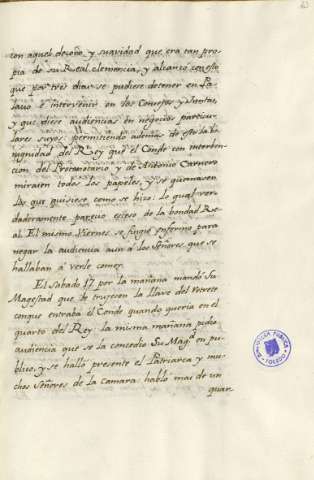 con aquel decoro, y suavidad que era tan pro
pia de su Real clemencia, y alcanzó con esto
que por tres dias se pudiese detener en Pa
lacio è intervenir en los Consejos y Juntas,
y que diese audiencias en negocios particu
lares suyos permitiendo ademas de esto la be
nignidad del Rey que el Conde con interben
cion del Protonotario y de Antonio Carnero
mirasen todos los papeles, y se quemasen
los que quisiese, como se hizo: lo qual ver
daderamente parecio exceso de la bondad Re
al. El mismo Viernes se fingió enfermo para
negar la audiencia aun à los Señores que se
hallaban à verle comer.
El Sabado 17 por la mañana mandó Su
Magestad que le trugesen la llave del retrete
con que entraba el Conde quando queria en el
quarto del Rey la misma mañana pidió
audiencia que se la concedio Su Magd. en pu
blico, y se halló presente el Patriarca y mu
chos Señores de la Camara habló mas de un
quar
BIBLIOTECA PUBLICA
TOLEDO